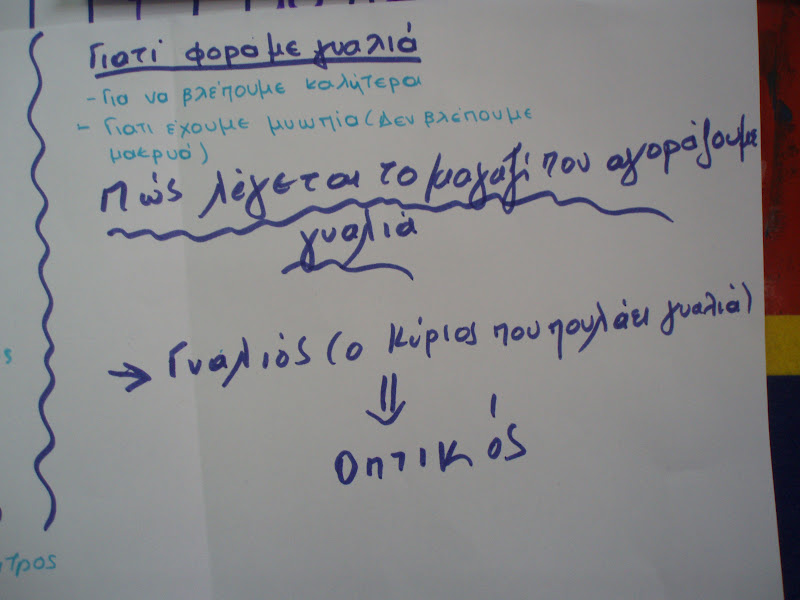 Γιατί φοράμε γυαλιά
- Για να βλέπουμε καλήτερα
- Γιατι έχουμε μυωπία (Δεν βλέπουμε
μακρυά)
Πώς λέγεται το μαγαζί που αγοράζουμε
γυαλιά
→ Γυάλιός (ο κύριος που πουλάει γυαλιά)
⇓
Οπτικός
ς
τρος